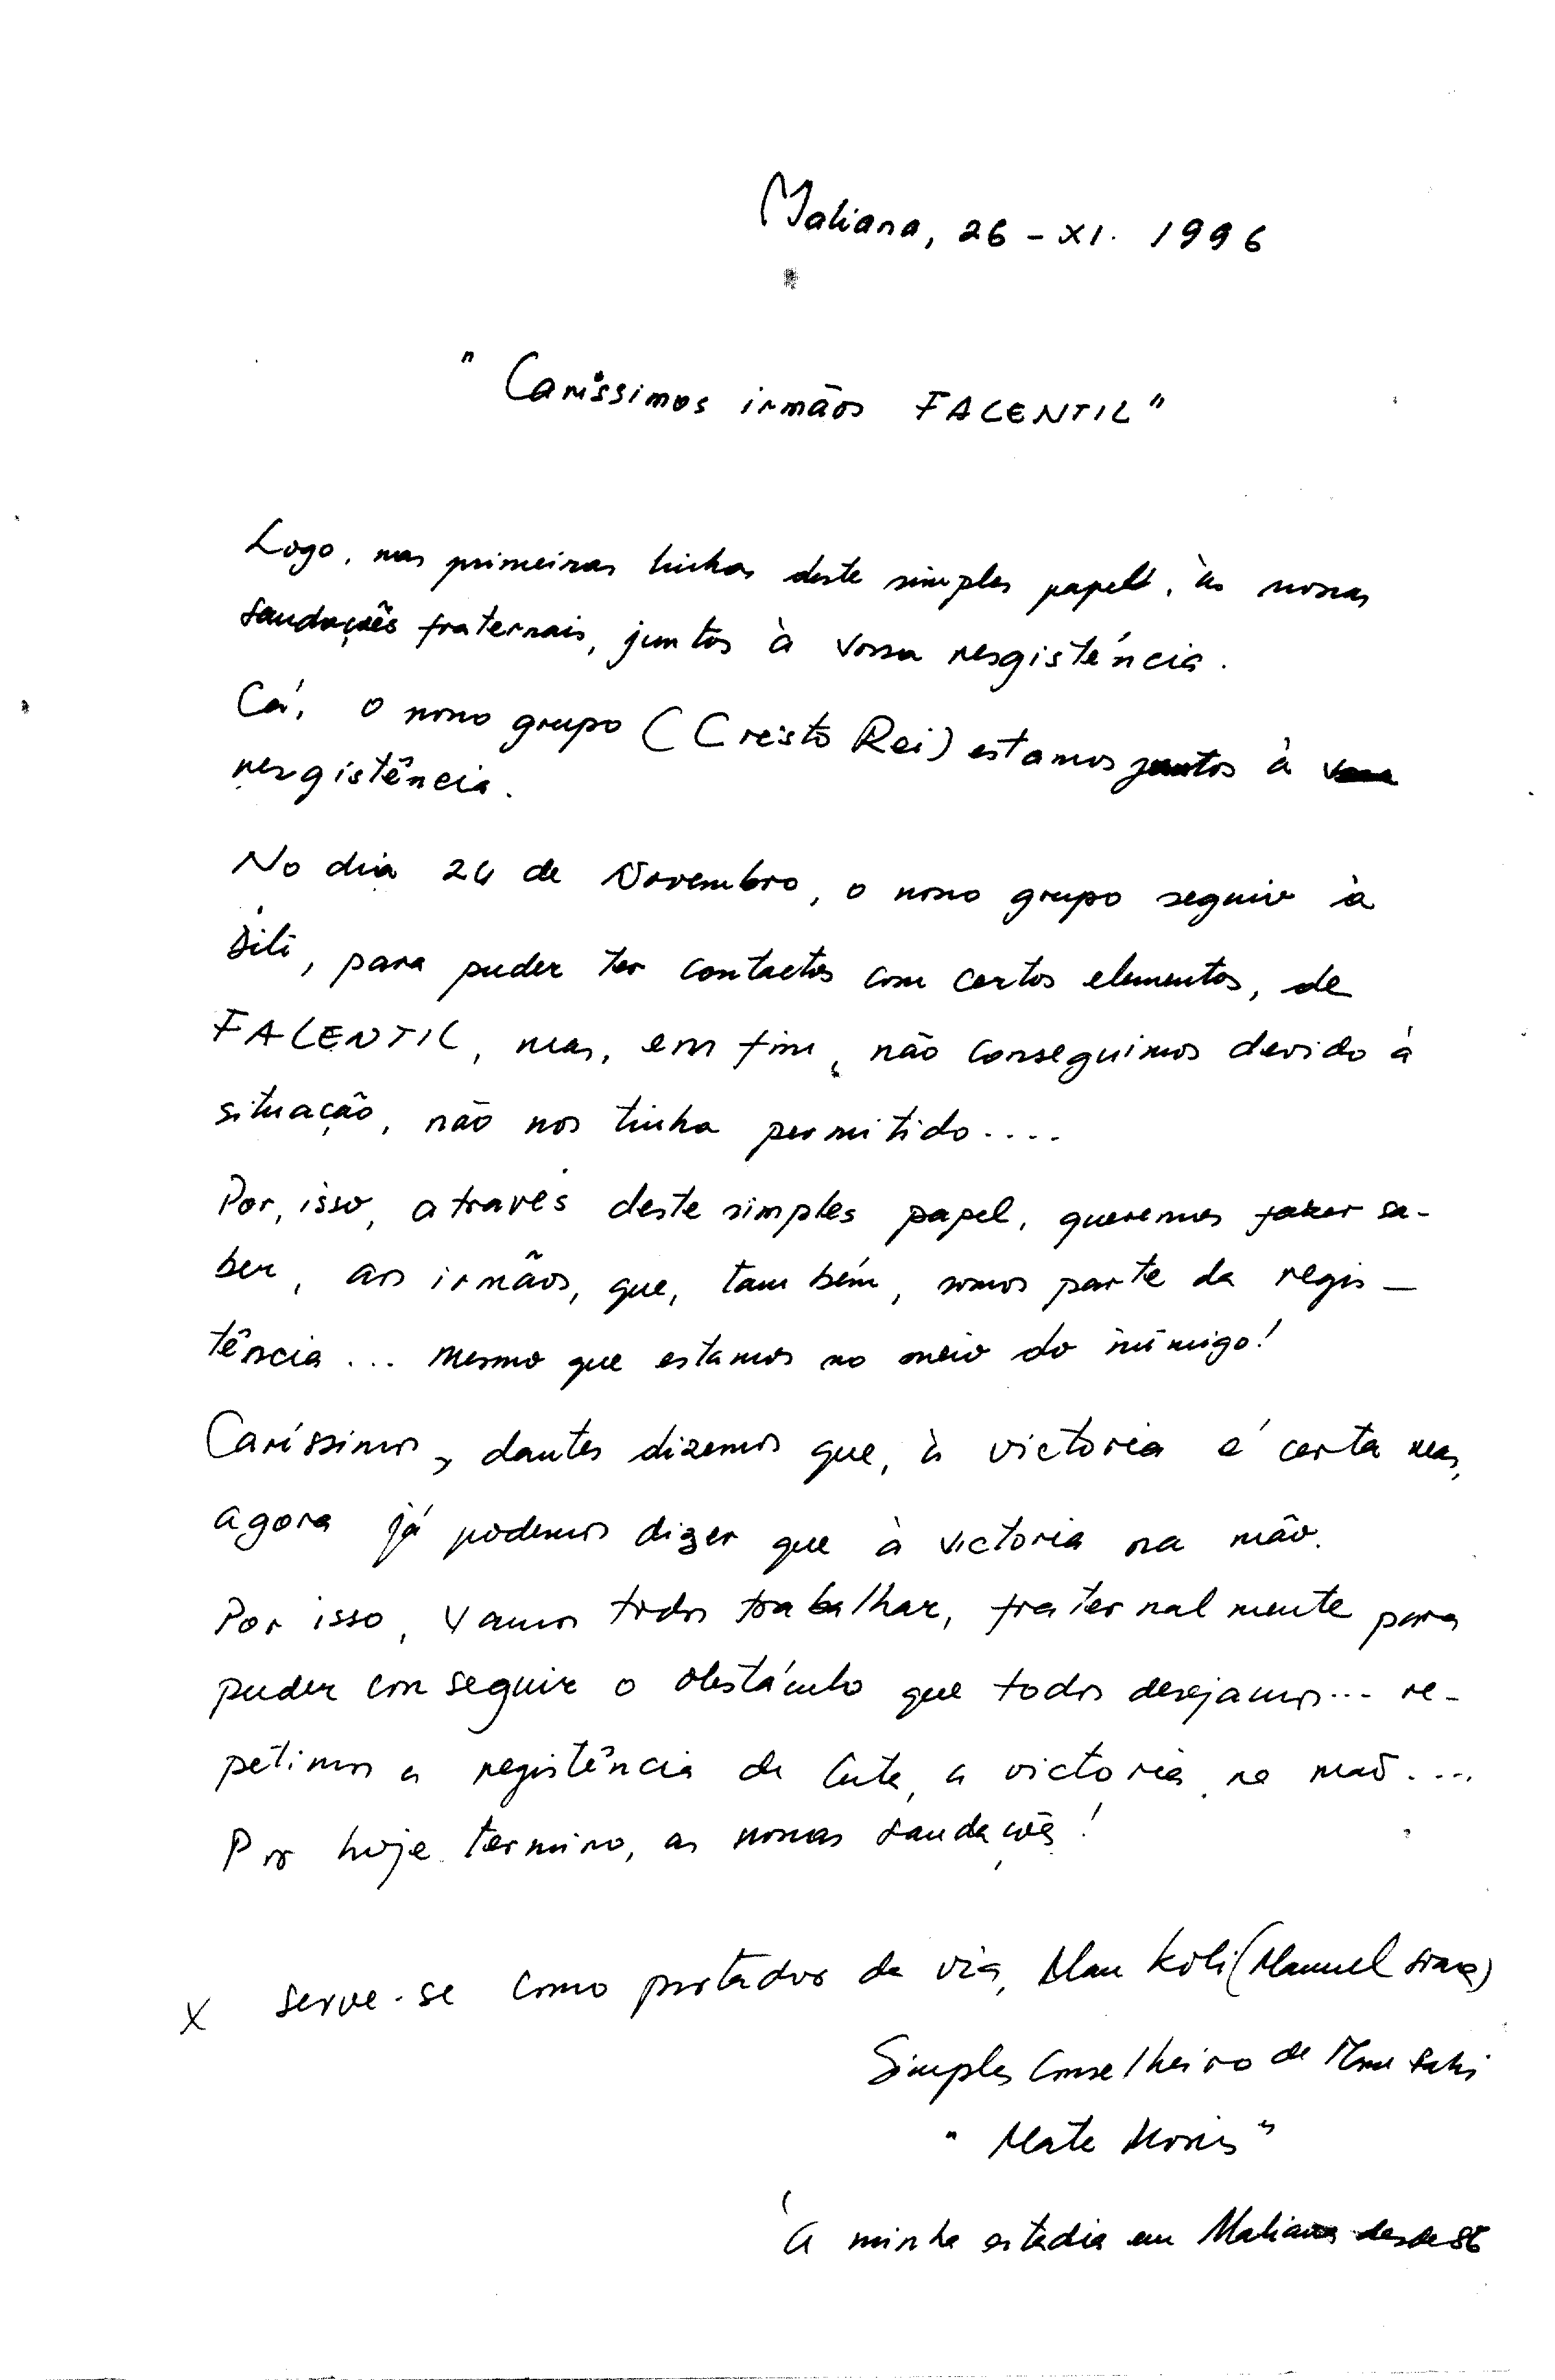 Maliana, 26 - XI. 1996
" Caríssimos irmãos FALENTIL"
Logo, nas primeiras linhas deste simples papel, às nossas
saudações fraternais, juntos à vossa resgistência.
Cá, o nosso grupo (Cristo Rei) estamos juntos à
resgistência.
No dia 24 de Novembro, o nosso grupo seguiu à
Dili, para puder ter contactos com certos elementos, de
FALENTIL, mas, em fim, não conseguimos devido à
situação, não nos tinha permitido....
Por, isso, através deste simples papel, queremos fazer sa-
ber, aos irmãos, que, também, somos parte da regis-
tência... mesmo que estamos no meio do inimigo!
Caríssimos, dantes dizemos que, à victoria é certa mas,
agora já podemos dizer que à victoria na mão.
Por isso, vamos todos trabalhar, fraternalmente para
puder conseguir o obstáculo que todos desejamos... re-
petimos a registência de luta, a victoria na mão....
Por hoje termino, as nossas saudações!
X serve-se como portador da via, Mau Koli (Manuel
Simples Conselheiro de
" Mate "
À minha estadia em Maliana desde 86